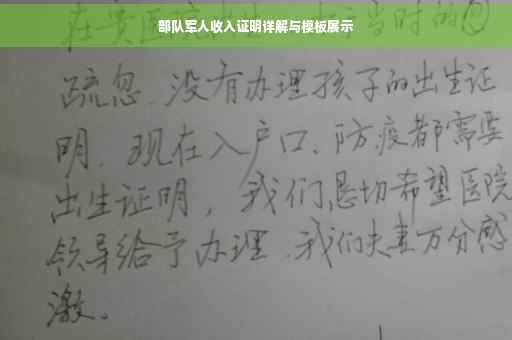 部队军人收入证明详解与模板展示
在贵医院 当时的
疏忽，没有办理孩子的出生证
明，现在入户口、防疫都需要
出生证明，我们恳切希望医院
领导给予办理，我们夫妻万分感
激。